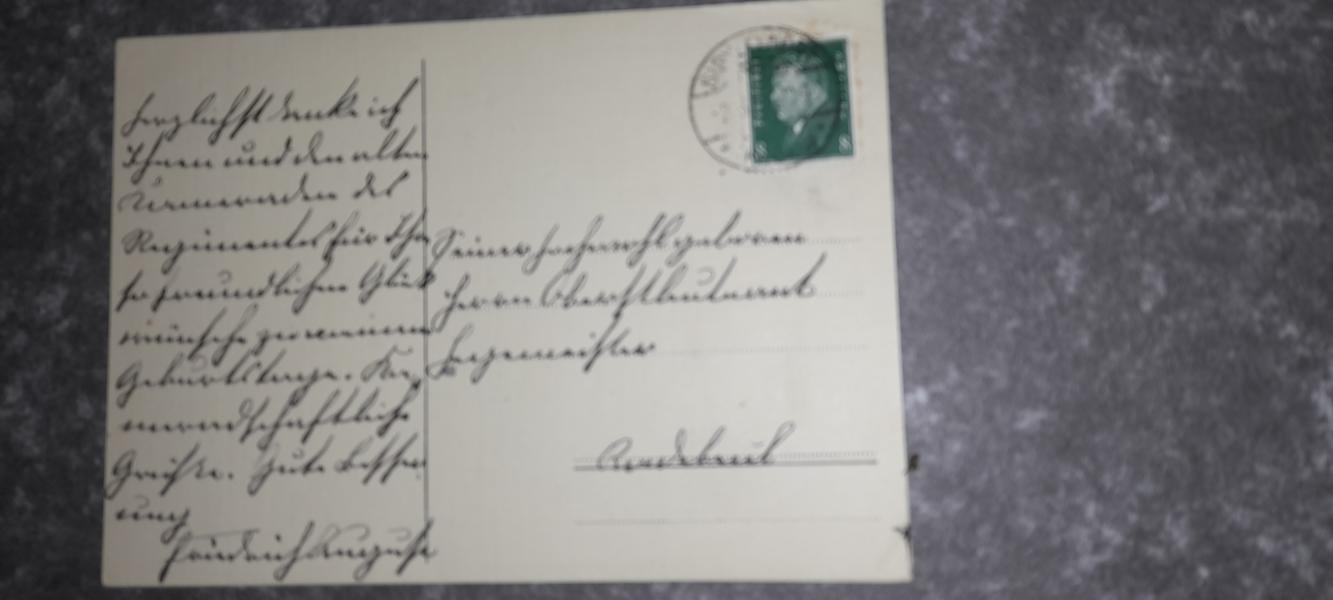 Herzlichst danke ich
Ihnen und den alten
Kameraden des
Regimentes für Ihre
so freundlichen Glück
wünsche zu meinem
Geburtstage. Ka
meradschaftliche
Grüße. Gute Besser
ung
Friedrich August
Seiner Hochwohlgeboren
Herrn Oberstleutnant
Hegemeister
Radebeul
8 8